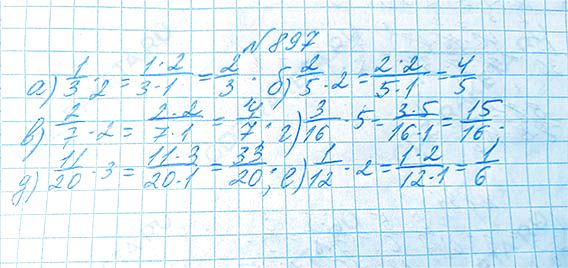 №897
а) 1/3 · 2 = 1·2/3·1 = 2/3 · б) 2/5 · 2 = 2·2/5·1 = 4/5
в) 2/7 · 2 = 2·2/7·1 = 4/7 ; г) 3/16 · 5 = 3·5/16·1 = 15/16 ;
д) 11/20 · 3 = 11·3/20·1 = 33/20 ; е) 1/12 · 2 = 1·2/12·1 = 1/6